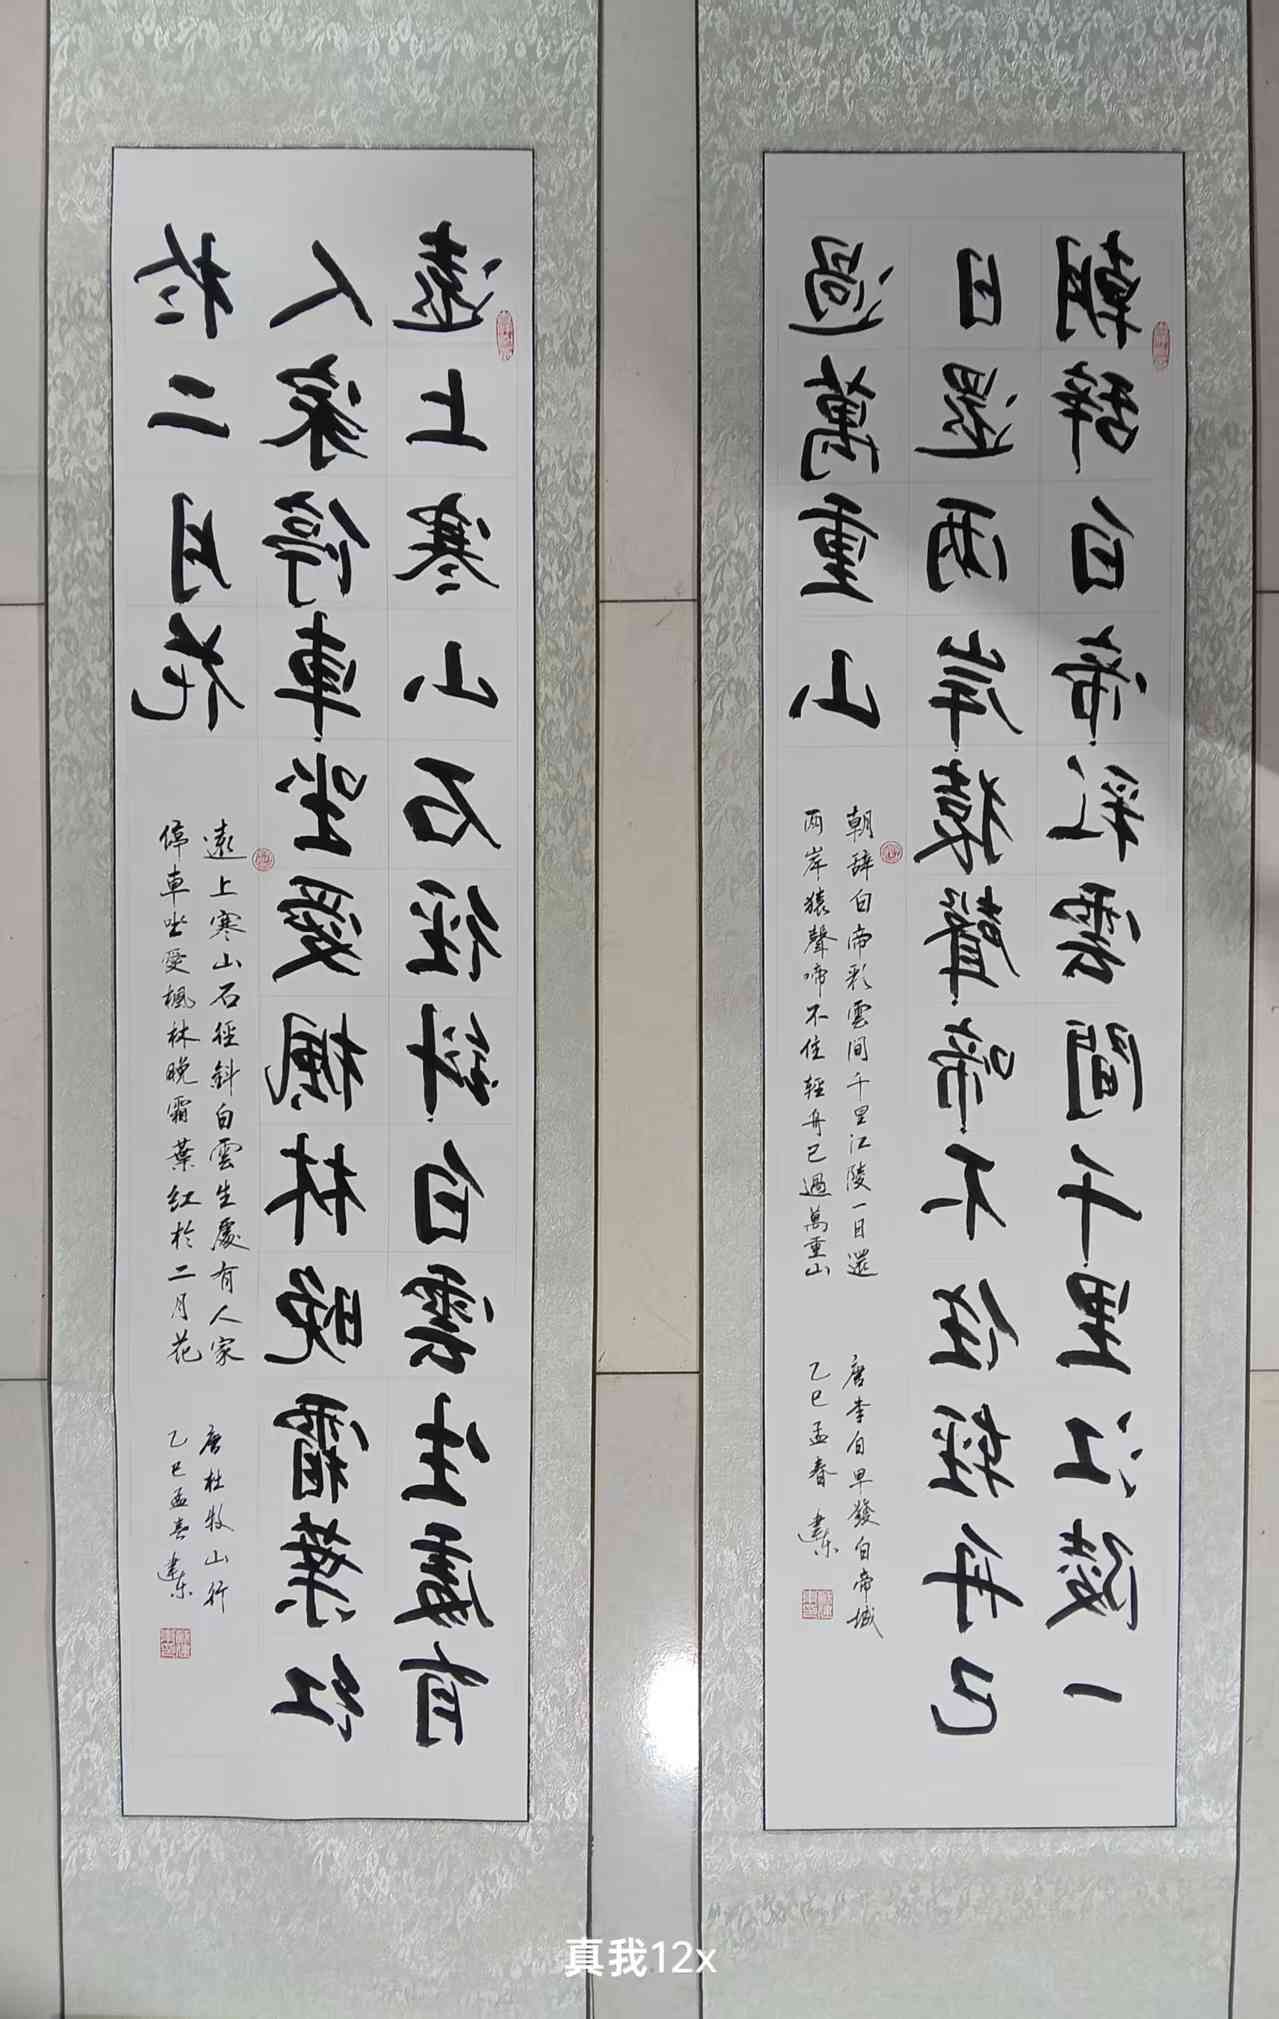 朝辞白帝彩雲間千里江陵一
日還两岸猿聲啼不住輕舟已
過萬重山
朝辞白帝彩雲间千里江陵一日還
两岸猿聲啼不住輕舟已過萬重山
唐李白早發白帝城
乙巳孟春 建东
遠上寒山石徑斜白雲生處有
人家停車坐愛楓林晚霜葉紅
於二月花
遠上寒山石徑斜白雲生處有人家
停車坐愛楓林晚霜葉红於二月花
唐杜牧山行
乙巳孟春 建东
真我12x